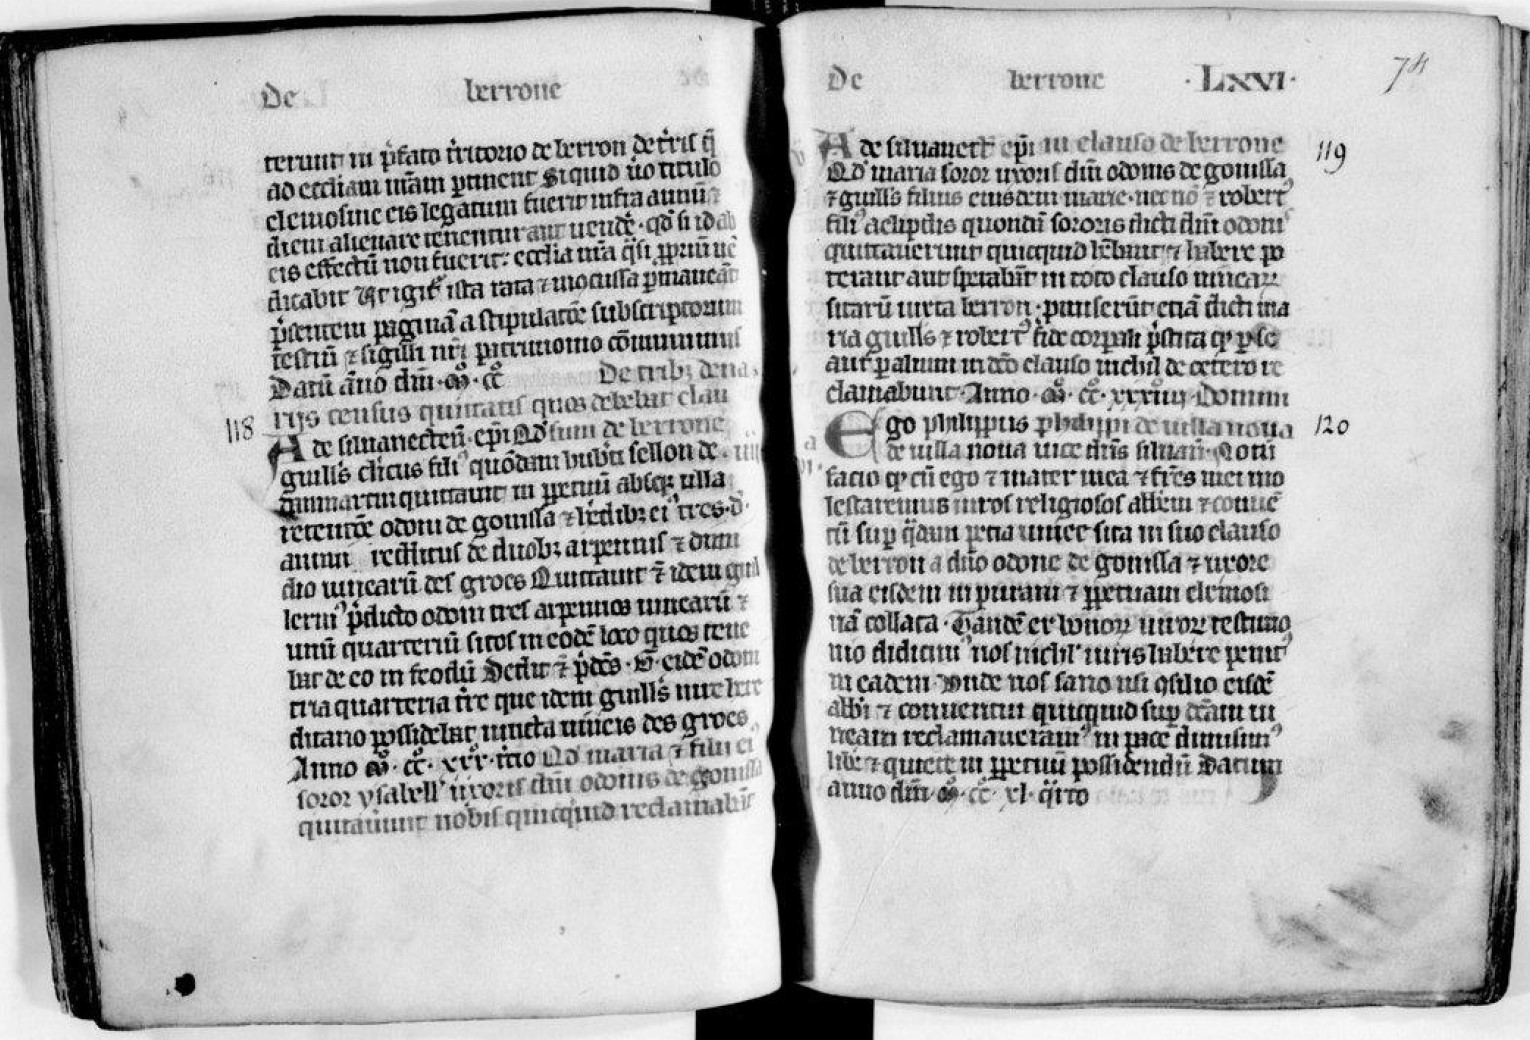 De berrone
terunt in p̄fato t̄ritorio de berron de t̄ris q̄
ad eccl̄iam nr̄am ꝑtinent Si quid ū̊o titulo
elemosine eis legatum fuerit infra annū ⁊
diem alienare tenentur aut uendẽ · qd̛ si id ab
eis effectū non fuerit: eccl̄ia nr̄a q̄si ꝓpriū uē
dicabit Ut igit̛ ista rata ⁊ inocussa ꝑmaneāt
p̄sentem paginā a stipulatōe subscriptorum
testiū ⁊ sigilli nr̄i patrimonio cōmunimus
Datū āno dn̄i · M̊ · cc̊ De trib; dena
118 rijs census quitatis quos debebat clau
A de siluanecteñ · ep̄i Qd̛ sum de berrone
guill̄s cl̄icus fili᾽ quōdam hub̄ti sellon de
dūmartin quittauit in ꝑpetuū absq; ulla
retentōe odoni de gonissa ⁊ h̄edib; ei᾽ tres · d̛ ·
annui redditus de duob; arpennis ⁊ dimi
dio uinearū des groes Quittauit ⁊̄ idem guil
lerm᾽ p̄dicto odoni tres arpennos uinearū ⁊
unū quarteriū sitos in eodē loco quos tene
bat de eo in feodū Dedit ⁊̄ p̄dc̄s · G̅ · eidē odoni
tria quarteria t̄re que idem guill̄s iure here
ditario possidebat iuncta uineis des groes
Anno M̊ · cc̊ · xxx̊ · t̄cio Qd̛ maria ⁊ filii ei᾽
soror ysabell᾽ uxoris dn̄i odonis de gonissa
quitauūnt nobis quicq̄uid reclamabāt
De berrone · LXVI · 74
A de siluanect̄ ep̄i in clauso de berrone 119
Qd̛ maria soror uxoris dn̄i odonis de gonissa
⁊ guill̄s filius eiusdem marie · nec nō ⁊ robert᾽
fili᾽ aelipdis quondā sororis dicti dn̄i odonis
quittauerunt quicquid h̄ebant ⁊ habere po
terant aut sperabāt in toto clauso uinearꝝ
sitarū iuxta berron · ꝓmiserūt etiā dicti ma
ria guill̄s ⁊ robert᾽ fide corꝑali p̄stita qꝫ ꝑ se
aut ꝑ alium in dc̄o clauso nichil de cetero re
clamabunt · Anno · M̊ · cc̊ · xxxiiij̊ · Domini
Ego philippus philippi de uilla noua 120
de uilla noua mile dn̄s siluañ · Notū
facio qꝫ cū ego ⁊ mater mea ⁊ fr̄es mei mo
lestaremus uiros religiosos abb̄em ⁊ conuē
tū suꝑ q̄dam petia uinee sita in suo clauso
de berron a dn̄o odone de gonissa ⁊ uxore
sua eisdem in puram ⁊ ꝑpetuam elemosi
nā collata · Tandē ex bonorꝝ uirorꝝ testimo
nio didicim᾽ nos nichil iuris habere penit᾽
in eadem · Unde nos sano usi ꝯsilio eisdē
abb̄i ⁊ conuentui quicquid suꝑ dc̄am ui
neam reclamaueram᾽ in pace dimisim᾽
lib̄e ⁊ quiete in ꝑpetuū possidendū Datum
anno dn̄i · M̊ · cc̊ · xl · q̄rto